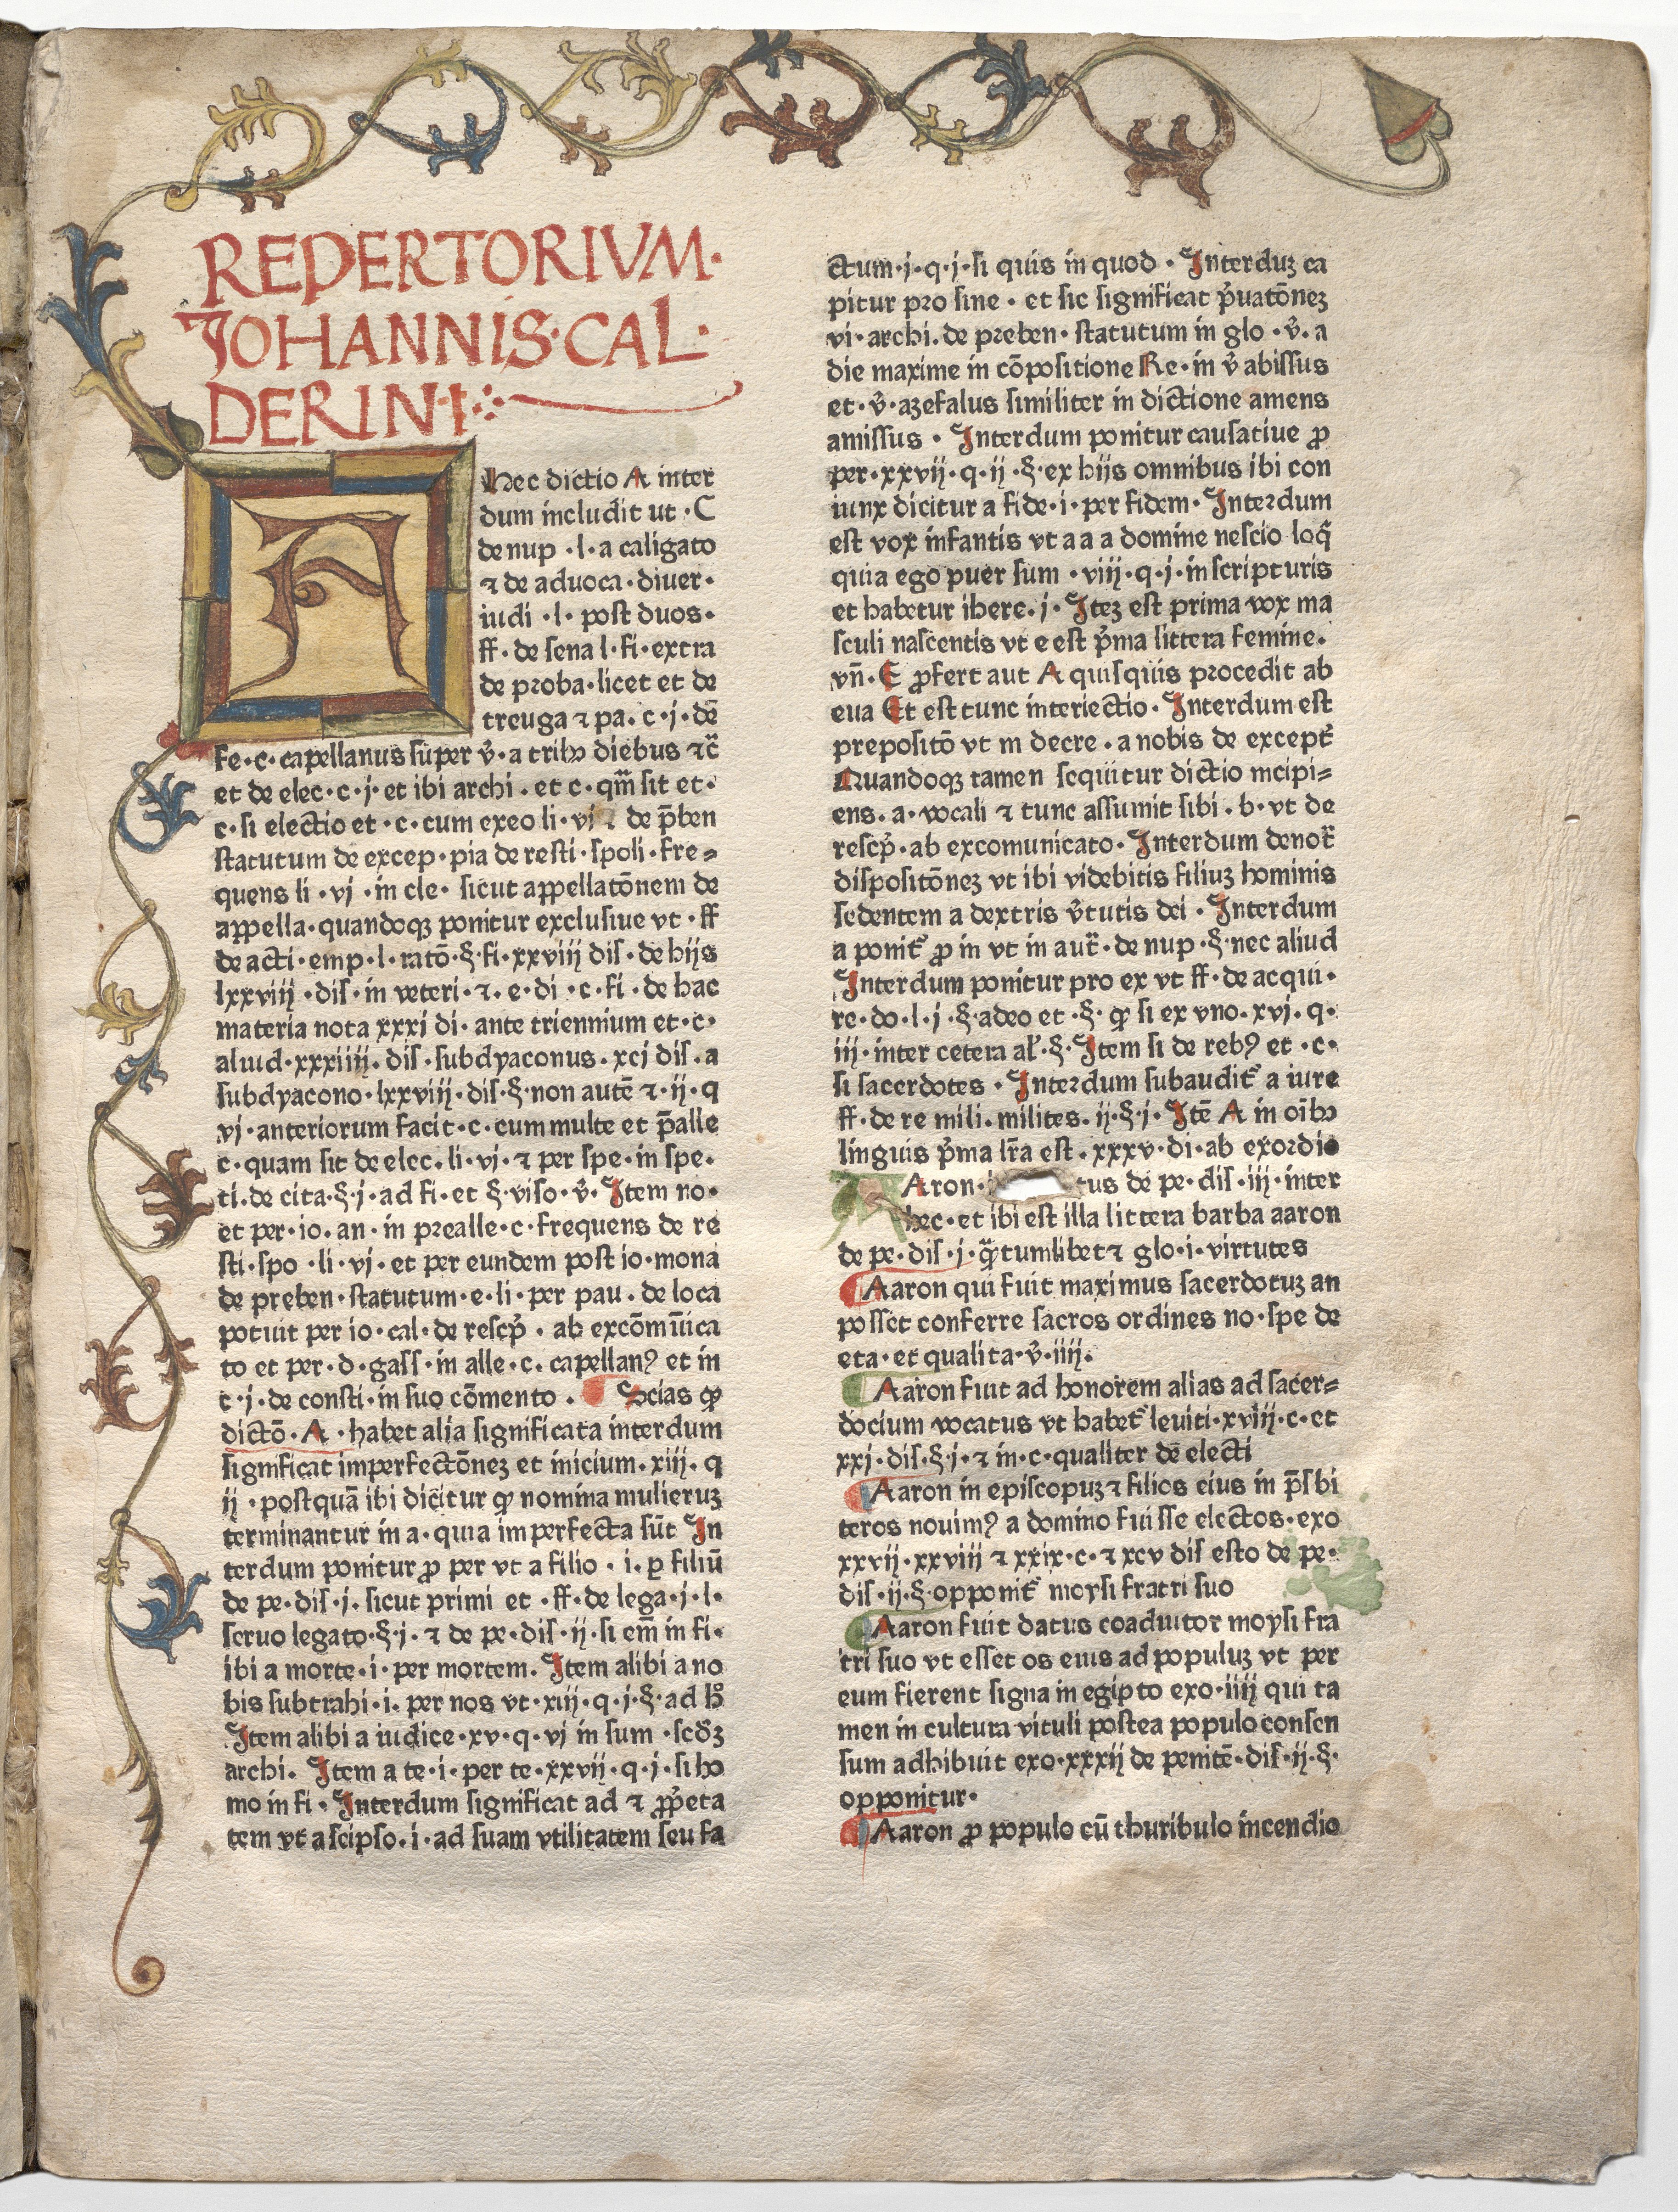 REPERTORIVM·
IOHANNIS·CAL·
DERINI
A
Hec dictio A inter
dum includit ut ·C
de nup ·l·a caligato
⁊ de aduoca·diuer·
iudi ·l· post duos·
ff·de sena l·fi·extra
de proba·licet et de
treuga ⁊ pa·c·j·dē
fe·c·capellanus super v̄·a tribꝫ diebus ⁊c̄
et de elec·c·j·et ibi archi·et c·qm̄ sit et·
c·si electio et·c·cum exeo li·vj ⁊ de p̄ben
statutum de excep·pia de resti·spoli·fre⸗
quens li·vj·in cle·sicut appellatōnem de
appella·quandoqꝫ ponitur exclusiue vt·ff
de acti·emp·l·ratō·§·fi·xxviij dis·de hijs
lxxviij·dis·in veteri·⁊·e·di·c·fi·de hac
materia nota xxxj di·ante triennium et·c·
aluid·xxxiiij·dis·subdyaconus·xcj dis·a
subdyacono·lxxviij·dis·§·non autē ⁊·ij·q
vj·anteriorum facit·c·cum multe et p̄alle
c·quam sit de elec·li·vj·⁊ per spe·in spe·
ti·de cita·§·j·ad fi·et §·viso·v̄·Item no·
et per·io·an·in prealle·c·frequens de re
sti·spo·li·vj·et per eundem post io·mona
de preben·statutum·e·li·per pau·de loca
potuit per io·cal·de rescp̄·ab excōm̄ica
to et per·d·gass·in alle·c·capellanꝰ et in
c·j·de consti·in suo cōmento· Scias ꝙ
dictō·A·habet alia significata interdum
significat imperfectōnez et inicium·xiij·q
ij·postquā ibi dicitur ꝙ nomina mulieruz
terminantur in a·quia imperfecta sūt In
terdum ponitur ꝓ per vt a filio·i·ꝑ filiū
de pe·dis·j·sicut primi et·ff·de lega·j·l·
seruo legato·§·j·⁊ de pe·dis·ij·si em̄ in fi·
ibi a morte·i·per mortem·Item alibi a no
bis subtrahi·i·per nos vt·xij·q·j·§·ad h°
Item alibi a iudice·xv·q·vj in sum·scd̄z
archi·Item a te·i·per te·xxvij·q·j·si ho
mo in fi·Interdum significat ad ⁊ ꝓp̄eta
tem vt a seipso·i·ad suam vtilitatem seu fa
ctum·j·q·j·si quis in quod·Interduz ca
pitur pro sine·et sic significat p̄uatōnez
vi·archi·de preben·statutum in glo·v̄·a
die maxime in cōpositione Re·in v̄ abissus
et·v̄·azefalus similiter in dictione amens
amissus·Interdum ponitur causatiue ꝓ
per·xxvij·q·ij·§·ex hijs omnibus ibi con
iunx dicitur a fide·i·per fidem·Interdum
est vox infantis vt a a a domine nescio loq̄
quia ego puer sum·viij·q·j·in scripturis
et habetur ihere·j·Itez est prima vox ma
sculi nascentis vt e est p̄ma littera femine·
vn̄·E ꝓfert aut A quisquis procedit ab
eua Et est tunc interiectio·Interdum est
prepositō vt in decre·a nobis de except̄
Quandoqꝫ tamen sequitur dictio incipi⸗
ens·a·vocali ⁊ tunc assumit sibi·b·vt de
rescp̄·ab excomunicato·Interdum denot̄
dispositōnez vt ibi videbitis filiuz hominis
sedentem a dextris v̄tutis dei·Interdum
a ponit̄ ꝓ in vt in aut̄·de nup·§·nec aliud
Interdum ponitur pro ex vt ff·de acqui·
re·do·l·j·§·adeo et·§·ꝙ si ex vno·xvj·q·
iij·inter cetera al̄·§·Item si de rebꝰ et·c·
si sacerdotes·Interdum subaudit̄ a iure
ff·de re mili·milites·ij·§·j·Itē A in oībꝫ
linguis p̄ma lr̄a est·xxxv·di·ab exordio
Aron· tus de pe·dis·iij·inter
hec·et ibi est illa littera barba aaron
de pe·dis·j·q̄tumlibet ⁊ glo·i·virtutes
Aaron qui fuit maximus sacerdotuz an
posset conferre sacros ordines no·spe de
eta·et qualita·v̄·iiij·
Aaron fuit ad honorem alias ad sacer⸗
docium vocatus vt habet̄ leuiti·xviij·c·et
xxj·dis·§·j·⁊ in·c·qualiter dē electi
Aaron in episcopuz ⁊ filios eius in p̄sbi
teros nouimꝰ a domino fuisse electos·exo
xxvij·xxviij ⁊ xxix·c·⁊ xcv dis esto de pe·
dis·ij·§·opponit̄ moysi fratri suo
Aaron fuit datus coadiutor moysi fra
tri suo vt esset os eius ad populuz vt per
eum fierent signa in egipto exo·iiij qui ta
men in cultura vituli postea populo consen
sum adhibuit exo·xxxij de penitē·dis·ij·§·
opponitur·
Aaron ꝓ populo cū thuribulo incendio